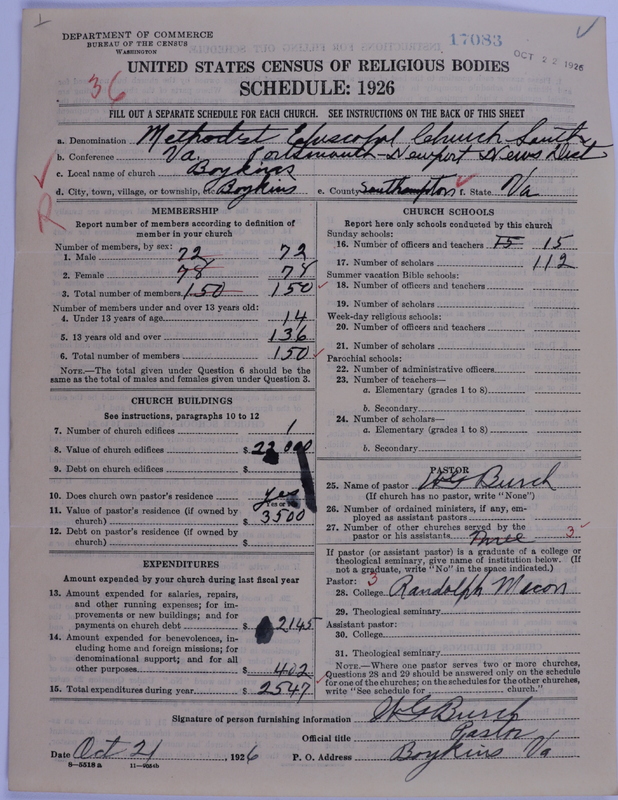 DEPARTMENT OF COMMERCE
BUREAU OF THE CENSUS
WASHINGTON
17083
OCT 22 1926
UNITED STATES CENSUS OF RELIGIOUS BODIES
SCHEDULE: 1926
36
FILL OUT A SEPARATE SCHEDULE FOR EACH CHURCH. SEE INSTRUCTIONS ON THE BACK OF THIS SHEET
a. Denomination Methodist Episcopal Church South
b. Conference Va. Portsmouth-Newport News Dist
c. Local name of church Boykins
d. City, town, village, or township, etc. Boykins e. County Southampton f. State Va
R
MEMBERSHIP
Report number of members according to definition of member in your church
Number of members, by sex:
1. Male 72 72
2. Female 78 78
3. Total number of members 150 150
Number of members under and over 13 years old:
4. Under 13 years of age 14
5. 13 years old and over 136
6. Total number of members 150
NOTE.—The total given under Question 6 should be the same as the total of males and females given under Question 3.
CHURCH BUILDINGS
See instructions, paragraphs 10 to 12
7. Number of church edifices 1
8. Value of church edifices $ 22000
9. Debt on church edifices $
10. Does church own pastor's residence yes
11. Value of pastor's residence (if owned by church) $ 3500
12. Debt on pastor's residence (if owned by church) $
EXPENDITURES
Amount expended by your church during last fiscal year
13. Amount expended for salaries, repairs, and other running expenses; for improvements or new buildings; and for payments on church debt $ 2145
14. Amount expended for benevolences, including home and foreign missions; for denominational support; and for all other purposes $ 402
15. Total expenditures during year $ 2547
CHURCH SCHOOLS
Report here only schools conducted by this church
Sunday schools:
16. Number of officers and teachers 15 15
17. Number of scholars 112
Summer vacation Bible schools:
18. Number of officers and teachers
19. Number of scholars
Week-day religious schools:
20. Number of officers and teachers
21. Number of scholars
Parochial schools:
22. Number of administrative officers
23. Number of teachers—
a. Elementary (grades 1 to 8)
b. Secondary
24. Number of scholars—
a. Elementary (grades 1 to 8)
b. Secondary
PASTOR
25. Name of pastor W G Burch
(If church has no pastor, write "None")
26. Number of ordained ministers, if any, employed as assistant pastors
27. Number of other churches served by the pastor or his assistants Three 3
If pastor (or assistant pastor) is a graduate of a college or theological seminary, give name of institution below. (If not a graduate, write "No" in the space indicated.)
Pastor: 3
28. College Randolph Macon
29. Theological seminary
Assistant pastor:
30. College
31. Theological seminary
NOTE.—Where one pastor serves two or more churches, Questions 28 and 29 should be answered only on the schedule for one of the churches; on the schedules for the other churches, write "See schedule for church."
Signature of person furnishing information W G Burch
Official title Pastor
Date Oct 21, 1926 P. O. Address Boykins Va
8—5518 a